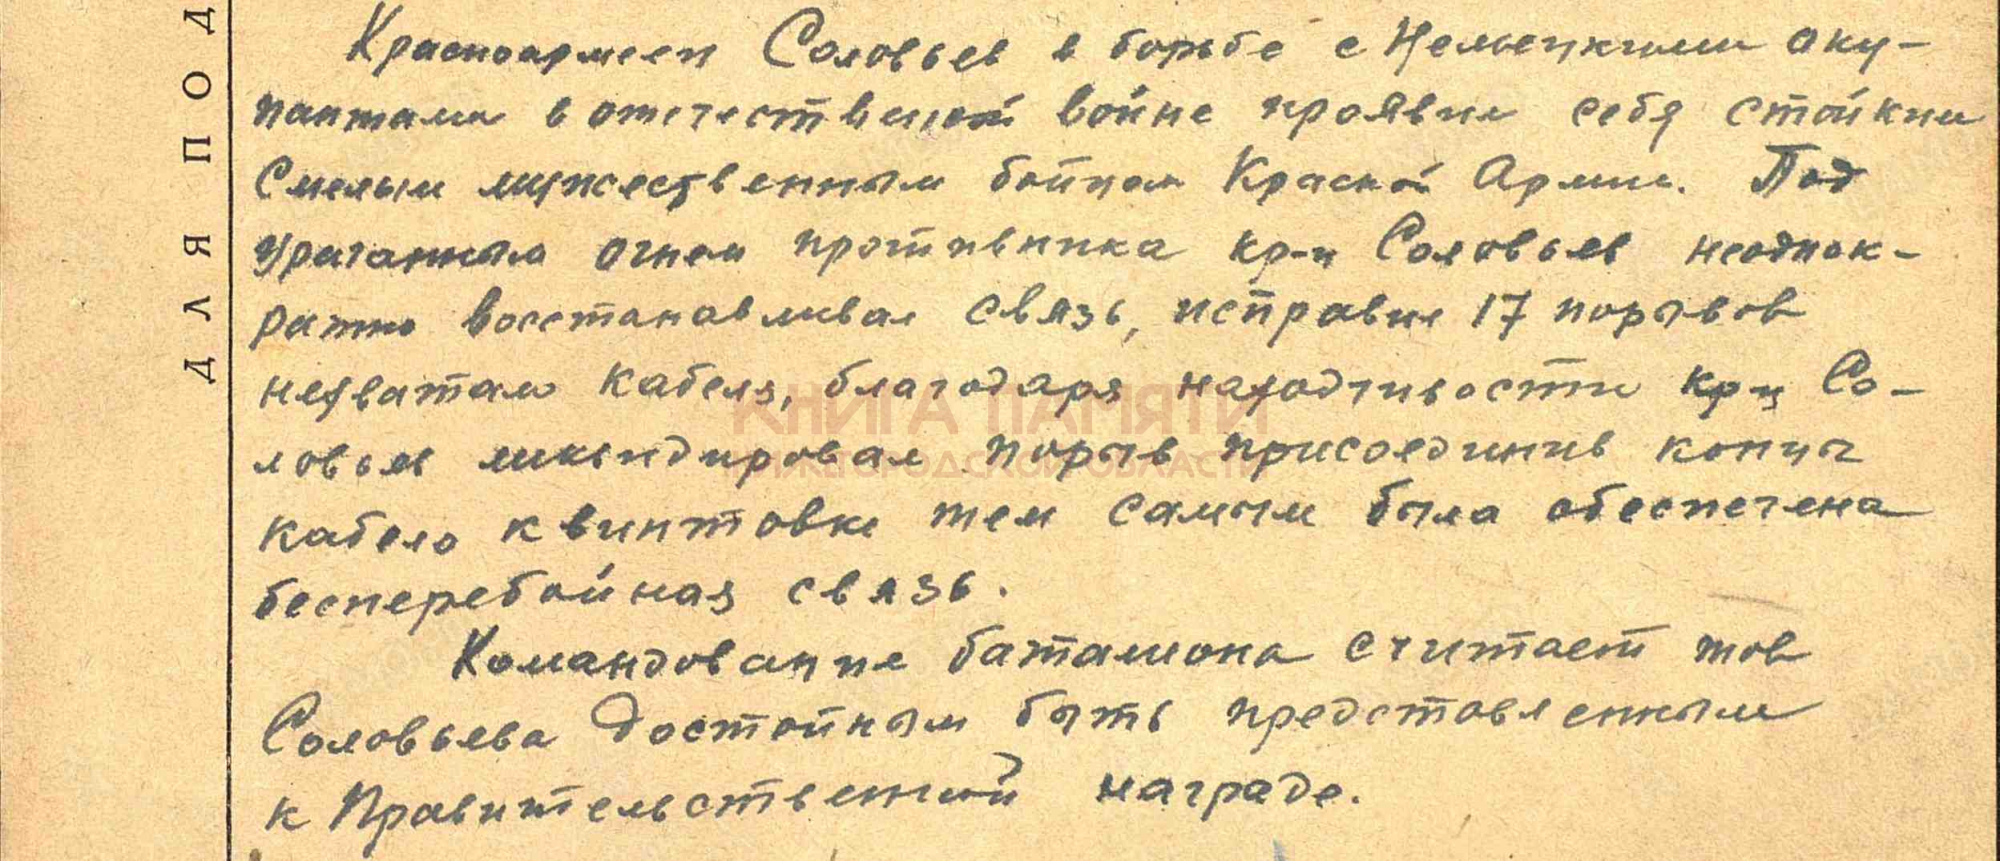 ДЛЯ ПОД
Красноармеец Соловьев в борьбе с Немецкими оку-
пантами в отечественой войне проявил себя стойким
Смелым мужественным бойцом Красной Армии. Под
ураганным огнем противника кр-ц Соловьев неоднок-
ратно восстанавливал связь, исправил 17 порывов
нехватало кабеля, благодаря находчивости кр-ц Со-
ловьев ликвидировал порыв присоединив концы
кабеля к винтовке тем самым была обеспечена
бесперебойная связь.
Командование баталиона считает тов
Соловьева достойным быть представленным
к Правительственной награде.
КНИГА ПАМЯТИ
НИЖЕГОРОДСКОЙ ОБЛАСТИ